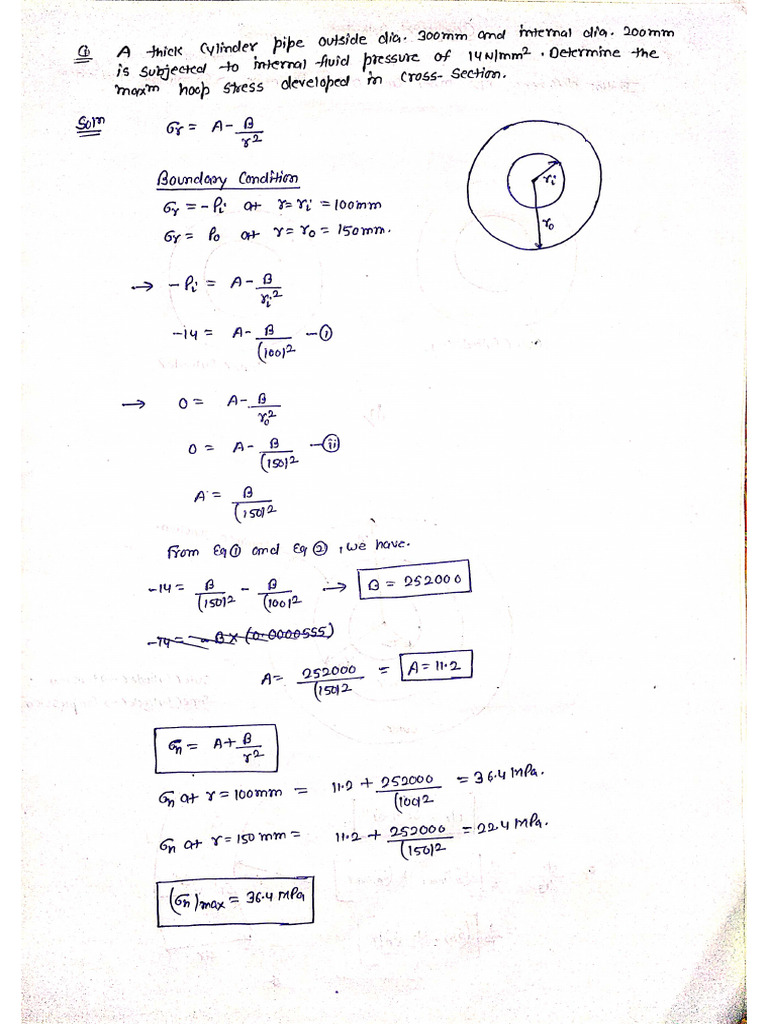 Q A thick Cylinder pipe outside dia. 300mm and internal dia. 200mm
is subjected to internal fluid pressure of 14N/mm². Determine the
maxᵐ hoop stress developed in cross-section.
Solⁿ σr = A - B/r²
Boundary Condition
σr = -Pi at r = ri = 100mm
σr = Po at r = ro = 150mm.
ri
ro
→ -Pi = A - B/ri²
-14 = A - B/(100)² -(i)
→ 0 = A - B/ro²
0 = A - B/(150)² -(ii)
A = B/(150)²
From Eq(1) and Eq(2), we have.
-14 = B/(150)² - B/(100)² → B = 252000
-14 = -B×(0.0000555)
A = 252000/(150)² = A = 11.2
σn = A + B/r²
σn at r = 100mm = 11.2 + 252000/(100)² = 36.4 MPa.
σn at r = 150mm = 11.2 + 252000/(150)² = 22.4 MPa.
(σn)max = 36.4 MPa